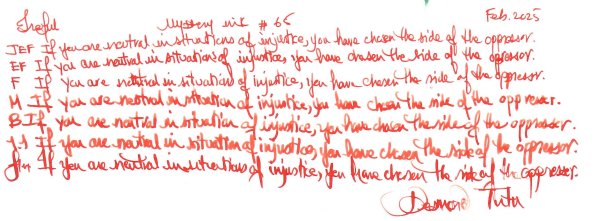 Mystery ink # 66 Feb. 2025
JEF If you are neutral in situations of injustice, you have chosen the side of the oppressor.
EF If you are neutral in situations of injustice, you have chosen the side of the oppressor.
F If you are neutral in situation of injustice, you have chosen the side of the oppressor.
M If you are neutral in situation of injustice, you have chosen the side of the oppressor.
B If you are neutral in situation of injustice, you have chosen the side of the oppressor.
1.1 If you are neutral in situation of injustice, you have chosen the side of the oppressor.
If you are neutral in situations of injustice, you have chosen the side of the oppressor.
Desmond Tutu